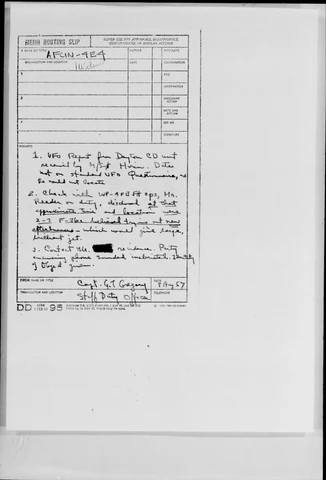 MEMO ROUTING SLIP
NEVER USE FOR APPROVALS, DISAPPROVALS,
CONCURRENCES, OR SIMILAR ACTIONS
1 NAME OR TITLE
AFCIN-4E4
INITIALS
CIRCULATE
ORGANIZATION AND LOCATION
DATE
COORDINATION
2
FILE
INFORMATION
3
NECESSARY
ACTION
NOTE AND
RETURN
4
SEE ME
SIGNATURE
REMARKS
1. UFO Report from Dayton CD unit
received by M/Sgt Data
not on standard UFO Questionnaire, as
he could not locate
2. Check with WP-AFB Flt ops, Mr.
Reeder on duty, disclosed at that
approximate time and location were
2-3 F-86s believed trying out new
afterburners - which would give large,
brilliant jet.
3. Contact residence. Party
answering phone sounded inebriated. Identity
of Lloyd given.
FROM NAME OR TITLE
Capt. G.T. Gregory
DATE
Aug 57
ORGANIZATION AND LOCATION
Staff Duty Officer
TELEPHONE
DD FORM 95
1 FEB 50